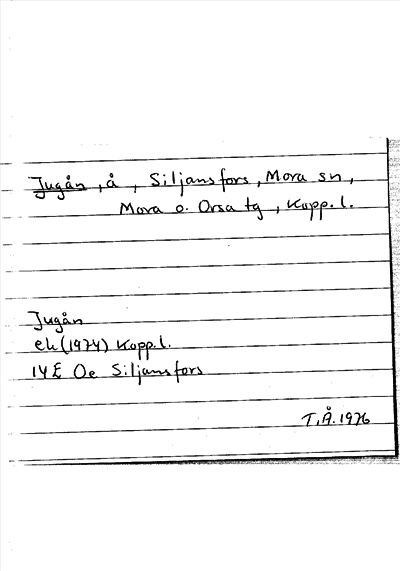 Jugån, å, Siljansfors, Mora sn,
Mora o. Orsa tg, Kopp.l.
Jugån
ek (1974) Kopp.l.
14E 0e Siljansfors
T.Å. 1976